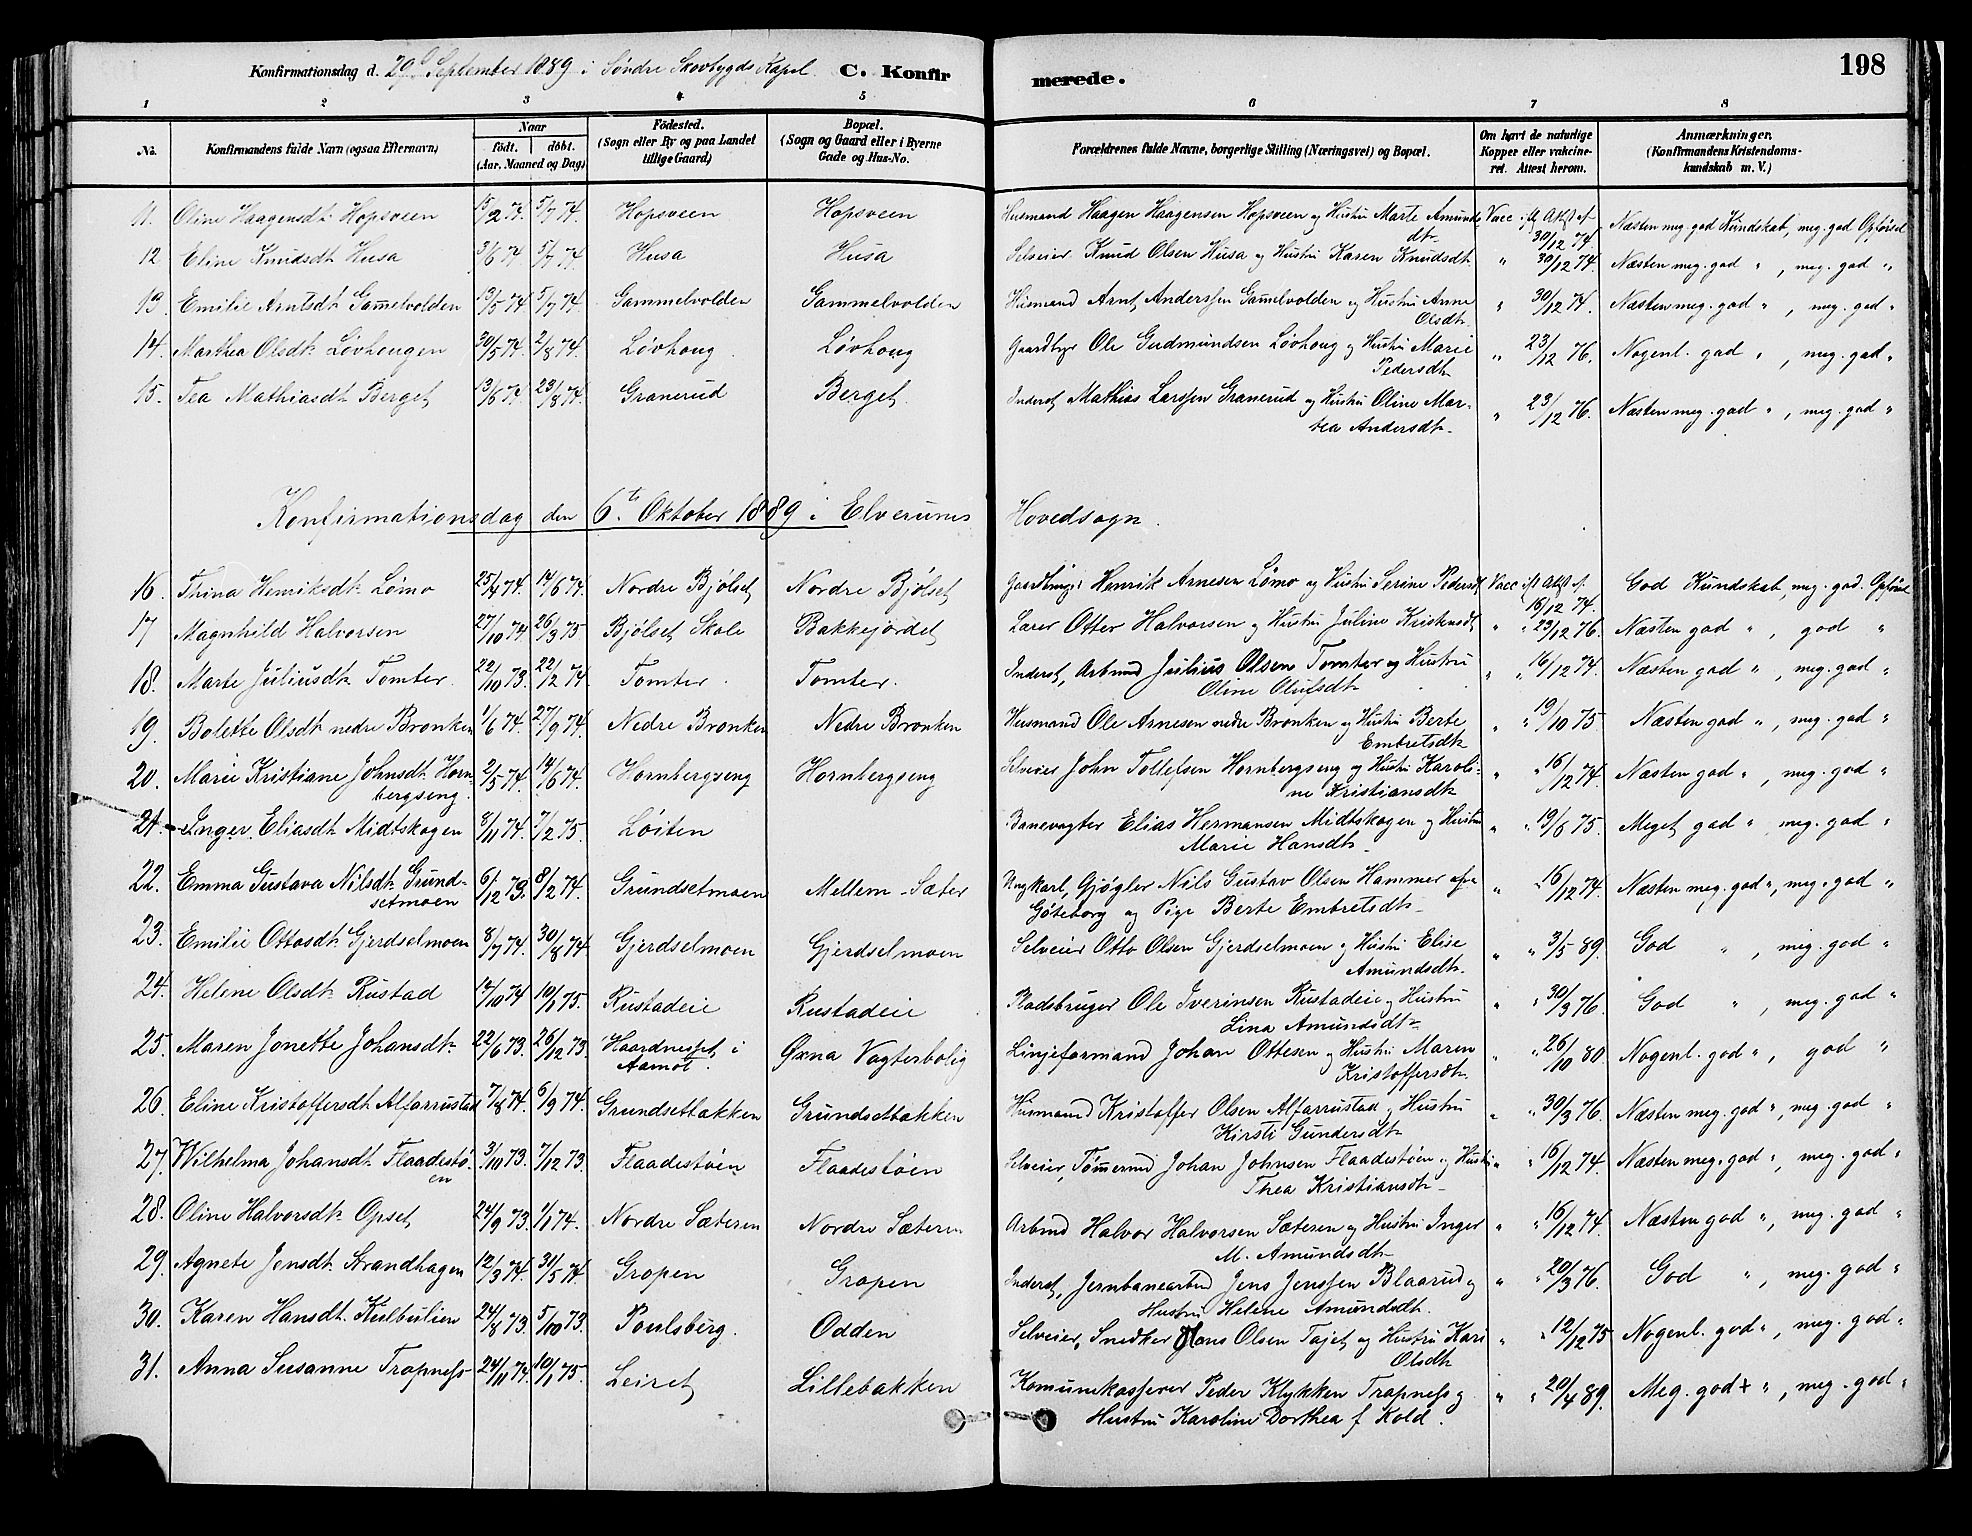 Konfirmationsdag d. 29de September 1889 i Søndre Skovbygds Kapel. C. Konfirmerede. 198
1 2 3 4 5 6 7 8
No. Konfirmandens fulde Navn (ogsaa Efternavn). Naar Födt. döbt. (Aar, Maaned og Dag) Födested. (Sogn eller By og paa Landet tillige Gaard) Bopæl. (Sogn og Gaard eller i Byerne Gade og Hus-No. Forældrenes fulde Navne, borgerlige Stilling (Næringsvei) og Bopæl. Om havt de naturlige Kopper eller vakcineret. Attest herom. Anmærkninger. (Konfirmandens Kristendomskundskab m. V.)
11. Oline Haagensdt. Hopsveen 15/2 74. 5/7 74. Hopsveen Hopsveen Husmand Haagen Haagensen Hopsveen og Hustru Marte Amundsdt. Vacc. ifl. Atst. af 30/12 74. Næsten meg. god Kundskab, meg. god Opførsel
12 Eline Knudsdt. Husa 3/6 74 5/7 74. Husa Husa Selveier Knud Olsen Husa og Hustru Karen Knudsdt. " 30/12 74. Næsten meg. god " , meg. god "
13 Emilie Arntsdt. Gamelvolden 13/5 74 5/7 74. Gammelvolden Gammelvolden Husmand Arnt Anderssen Gamelvolden og Hustru Anne Olsdt. " 30/12 74. Næsten meg. god " , meg. god "
14. Marthea Olsdt. Løvhougen 30/5 74. 2/8 74. Løvhoug Løvhoug Gaardbgr Ole Gudmundsen Løvhoug og Hustru Marie Pedersdt. " 23/12 76. Nogenl. god " , meg. god "
15. Tea Mathiasdt. Berget 13/6 74. 23/8 74. Granerud Berget. Inderst, Mathias Larssen Granerud og Hustru Oline Martea Andersdt. " 23/12 76. Næsten meg. god " , meg. god "
Konfirmationsdag den 6te Oktober 1889 i Elverums Hovedsogn.
16. Thina Henriksdt. Lømo 25/4 74. 14/6 74. Nordre Bjølset Nordre Bjølset Henrik Arnesen Lømo og Hustru Serine Pedersdt. Vacc. ifl. Atst. af. 16/12 74. God Kundskab, meg. god. Opførsel
17 Magnhild Halvorsen 27/10 74 26/3 75 Bjølset Skole Bakkejordet Lærer Otter Halvorsen og Hustru Juline Kristensdt. " " 23/12 76. Næsten god " , god "
18. Marte Juliusdt. Tomter. 22/10 73. 22/2 74 Tomter. Tomter. Inderst, Arbmd Julius Olsen Tomter og Hustru Oline Olufsdt. " " 16/12 74. Næsten god " , meg. god "
19. Bolette Olsdt. nedre Bronken 1/6 74. 27/9 74. Nedre Bronken Nedre Bronken Husmand Ole Arnesen nedre Bronken og Hustru Berte Embretsdt. " " 19/10 75. Næsten god " , meg. god "
20. Marie Kristiane Johnsdt. Hornbergseng. 2/5 74. 14/6 74. Hornbergseng Hornbergseng Selveier John Tollefsen Hornbergseng og Hustru Karoline Kristiansdt. " " 16/12 74. Næsten god " , meg. god "
21. Inger Eliasdt. Midtskogen 8/11 74. 7/2 75. Løiten Banevogter Elias Hermansen Midtskogen og Hustru Marie Hansdt. " " 19/6 75. Meget god " , meg. god "
22. Emma Gustava Nilsdt. Grundsetmoen 6/12 73. 8/2 74. Grundsetmoen Mellem-Sæter Ungkarl, Gjøgler Nils Gustav Olsen Hammer af Göteborg og Pige Berte Embretsdt. " " 16/12 74. Næsten meg. god " , meg. god "
23. Emilie Ottosdt. Gjerdselmoen 8/7 74. 30/8 74. Gjerdselmoen Gjerdselmoen Selveier Otto Olsen Gjerdselmoen og Hustru Elise Amundsdt. " " 3/5 89. God " , meg. god "
24. Helene Olsdt. Rustad 17/10 74 10/1 75. Rustadeie Rustadeie Pladsbruger Ole Iverinsen Rustadeie og Hustru Lina Amundsdt. " " 30/3 76. God " , meg. god "
25. Maren Jonette Johansdt. 22/6 73. 26/12 73 Haardneset i Aamot. Øxna Vogterbolig Linjeformand Johan Ottesen og Hustru Maren Kristoffersdt. " " 26/10 80 Nogenl. god " , god "
26. Eline Kristoffersdt. Alfarrustad 7/8 74. 6/9 74. Grundsetbakken Grundsetbakken Husmand Kristoffer Olsen Alfarrustad og Hustru Kirsti Gundersdt. " " 30/3 76. Næsten meg. god " , meg. god "
27. Wilhelma Johansdt. Flaadestøen 3/10 73. 7/12 73. Flaadestøen Flaadestøen Selveier, Tømermd Johan Johnsen Flaadestøen og Hustru Thea Kristiansdt. " " 16/12 74. Næsten meg. god " , meg. god "
28. Oline Halvorsdt. Opset 24/9 73. 1/1 74. Nordre Sæteren Nordre Sæteren Arbmd Halvor Halvorsen Sæteren og Hustru Inger M. Amundsdt. " " 16/12 74. Næsten god " , meg. god "
29. Agnete Jensdt. Strandhagen 12/3 74. 31/5 74 Gropen Gropen Inderst, Jernbanearbmd Jens Jenssen Blaarud og Hustru Helene Amundsdt. " " 20/3 76. God " , meg. god "
30. Karen Hansdt. Kulbulien 24/8 73. 5/10 73. Poulsberg. Odden Selveier, Snedker Hans Olsen Tajet og Hustru Kari Olsdt. " " 12/12 75 Nogenl. god " , meg. god "
31. Anna Susanne Tropness 24/11 74. 10/1 75. Leiret Lillebakken Komunekasserer Peder Klykken Tropness og Hustru Karoline Dorthea f. Kold. " " 20/4 89. Meg. god + " , meg. god "